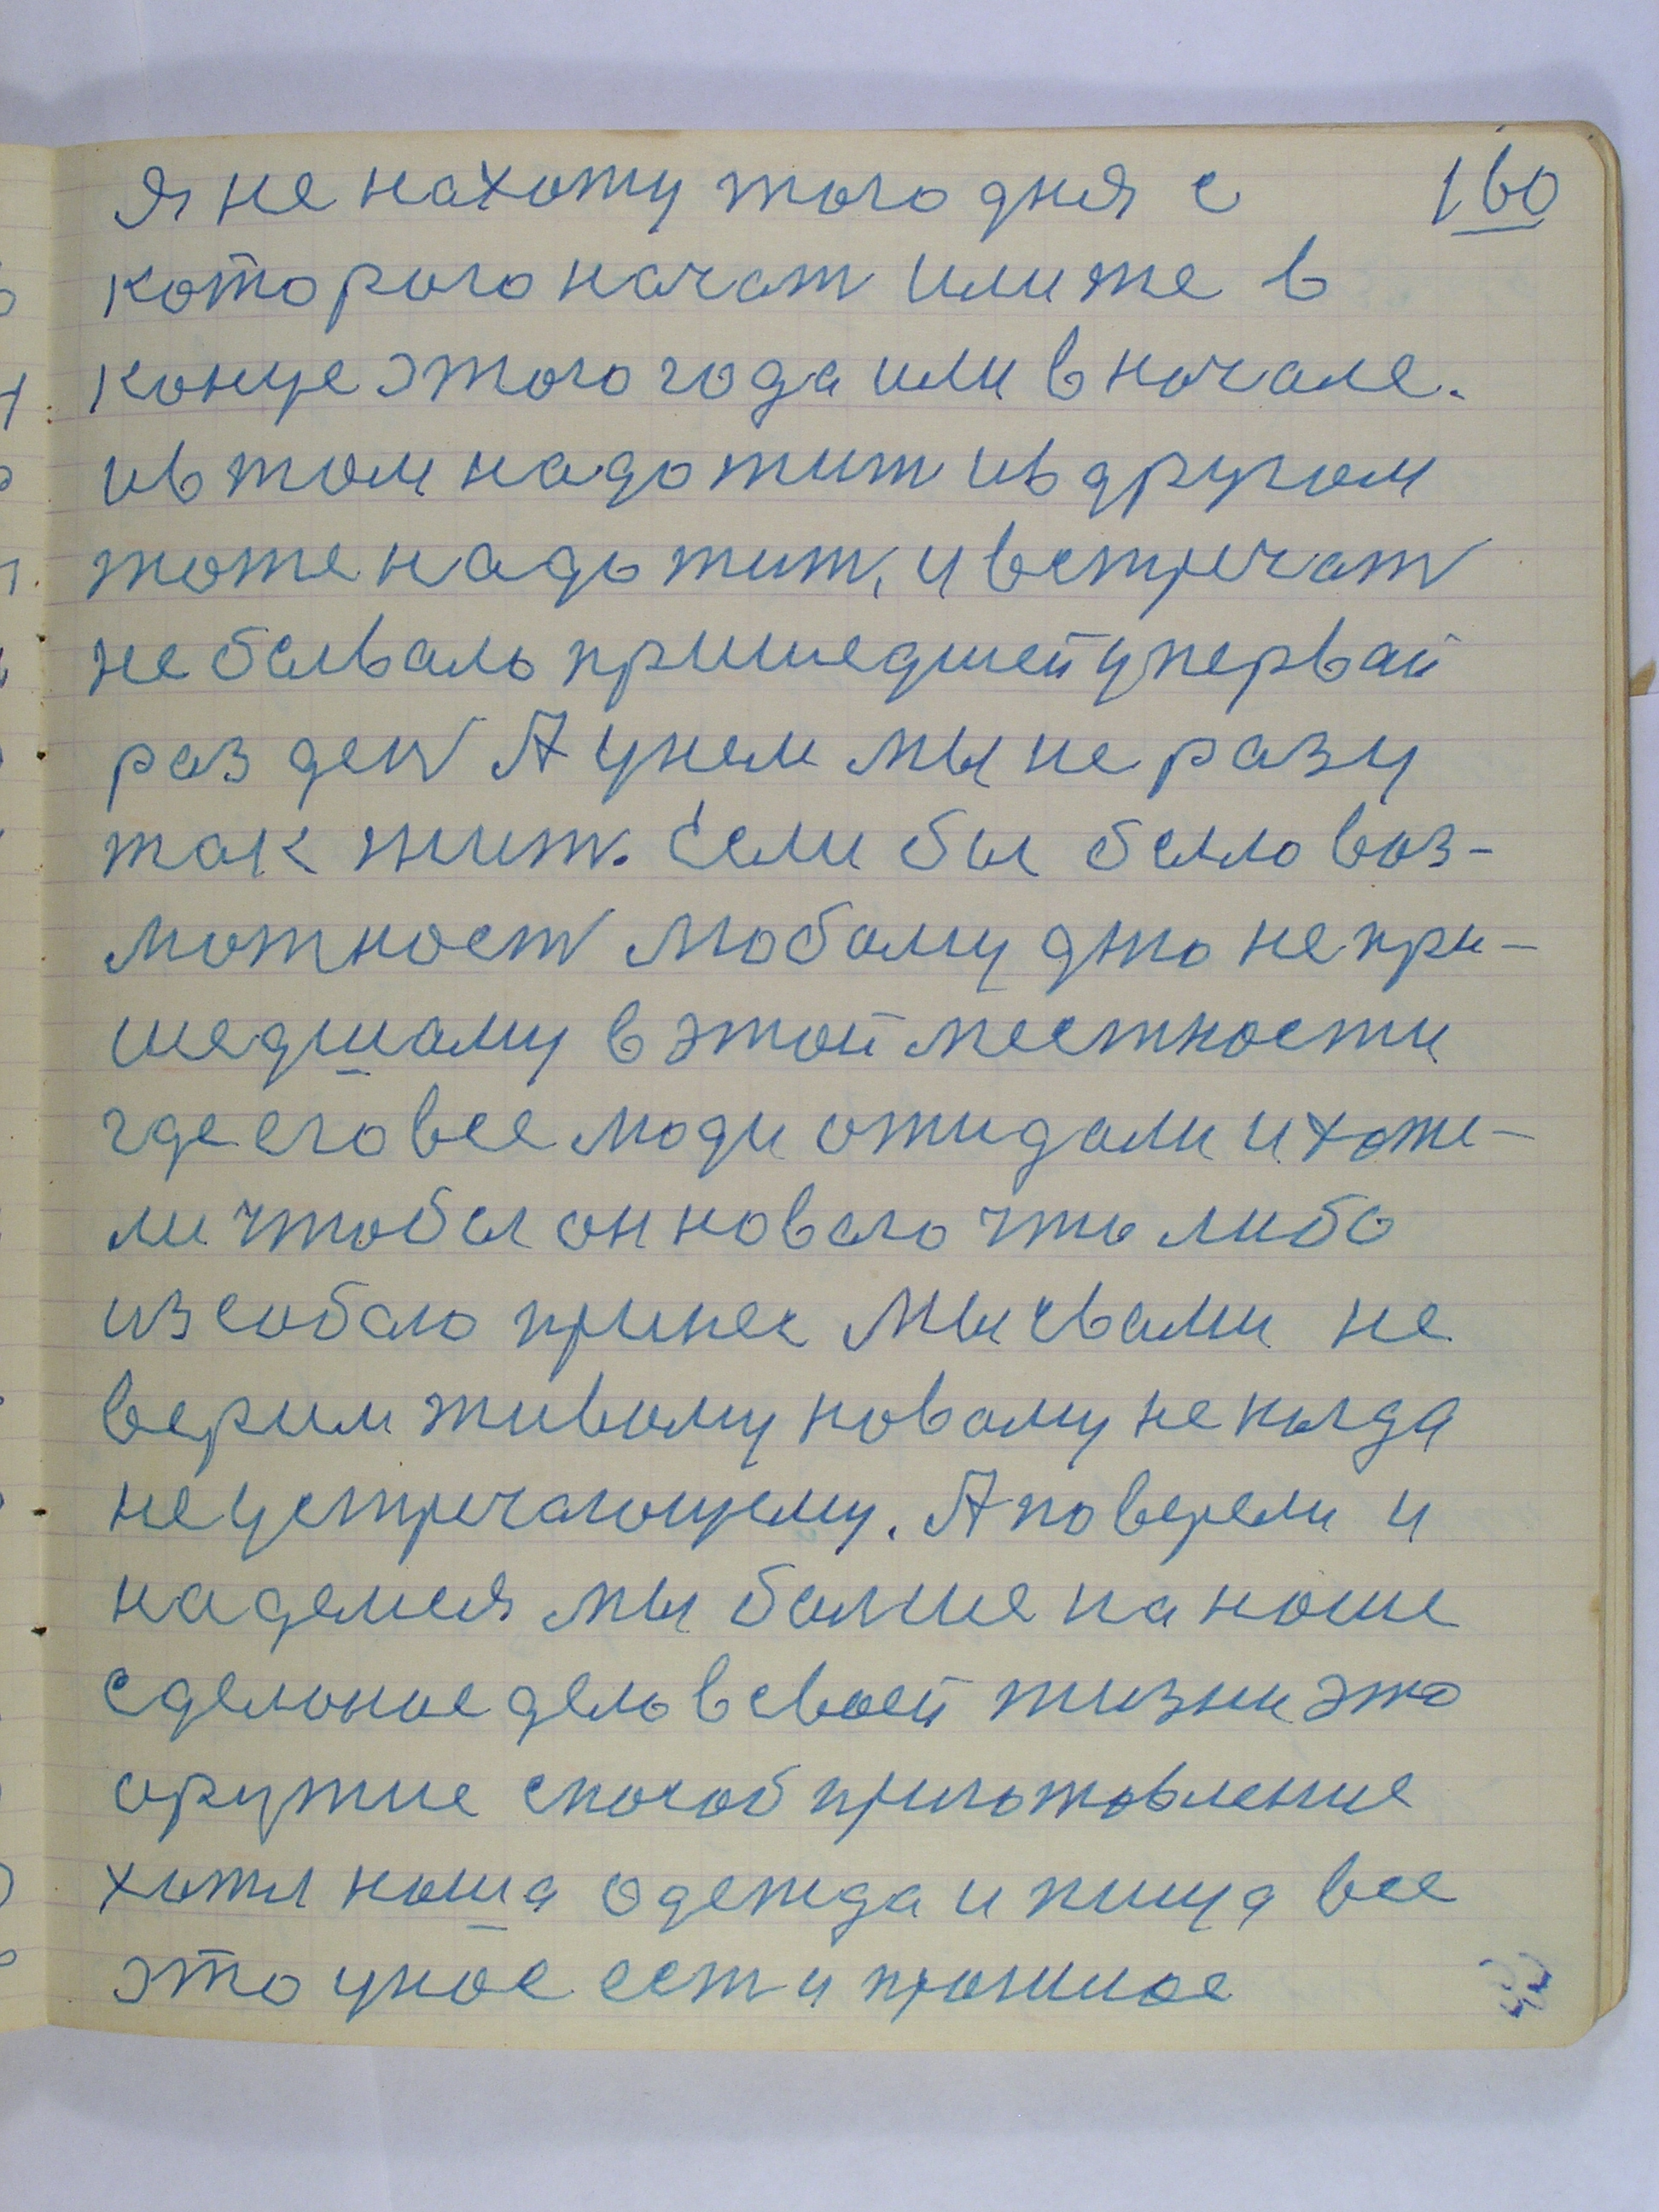 Я не нахожу того дня с 160
которого начат или же в
конце этого года или в начале.
и в том надо жит и в другом
тоже надо жит, и встречат
не бывало пришедшей у первай
раз ден А у нем мы не разу
так жит. Если бы было воз-
можност любому дню не при-
шедшаму в этой местности
где его все люди ожидали и хоте-
ли чтобы он новаго что либо
из собаю принес Мы с вами не
верим живому новаму не когда
не устречающему. А поверели и
наделися мы болше на наше
сделоное дело в своей жизни это
оружие способ приготовление
хотя наша одежда и пища все
это у нас ест и прошлое